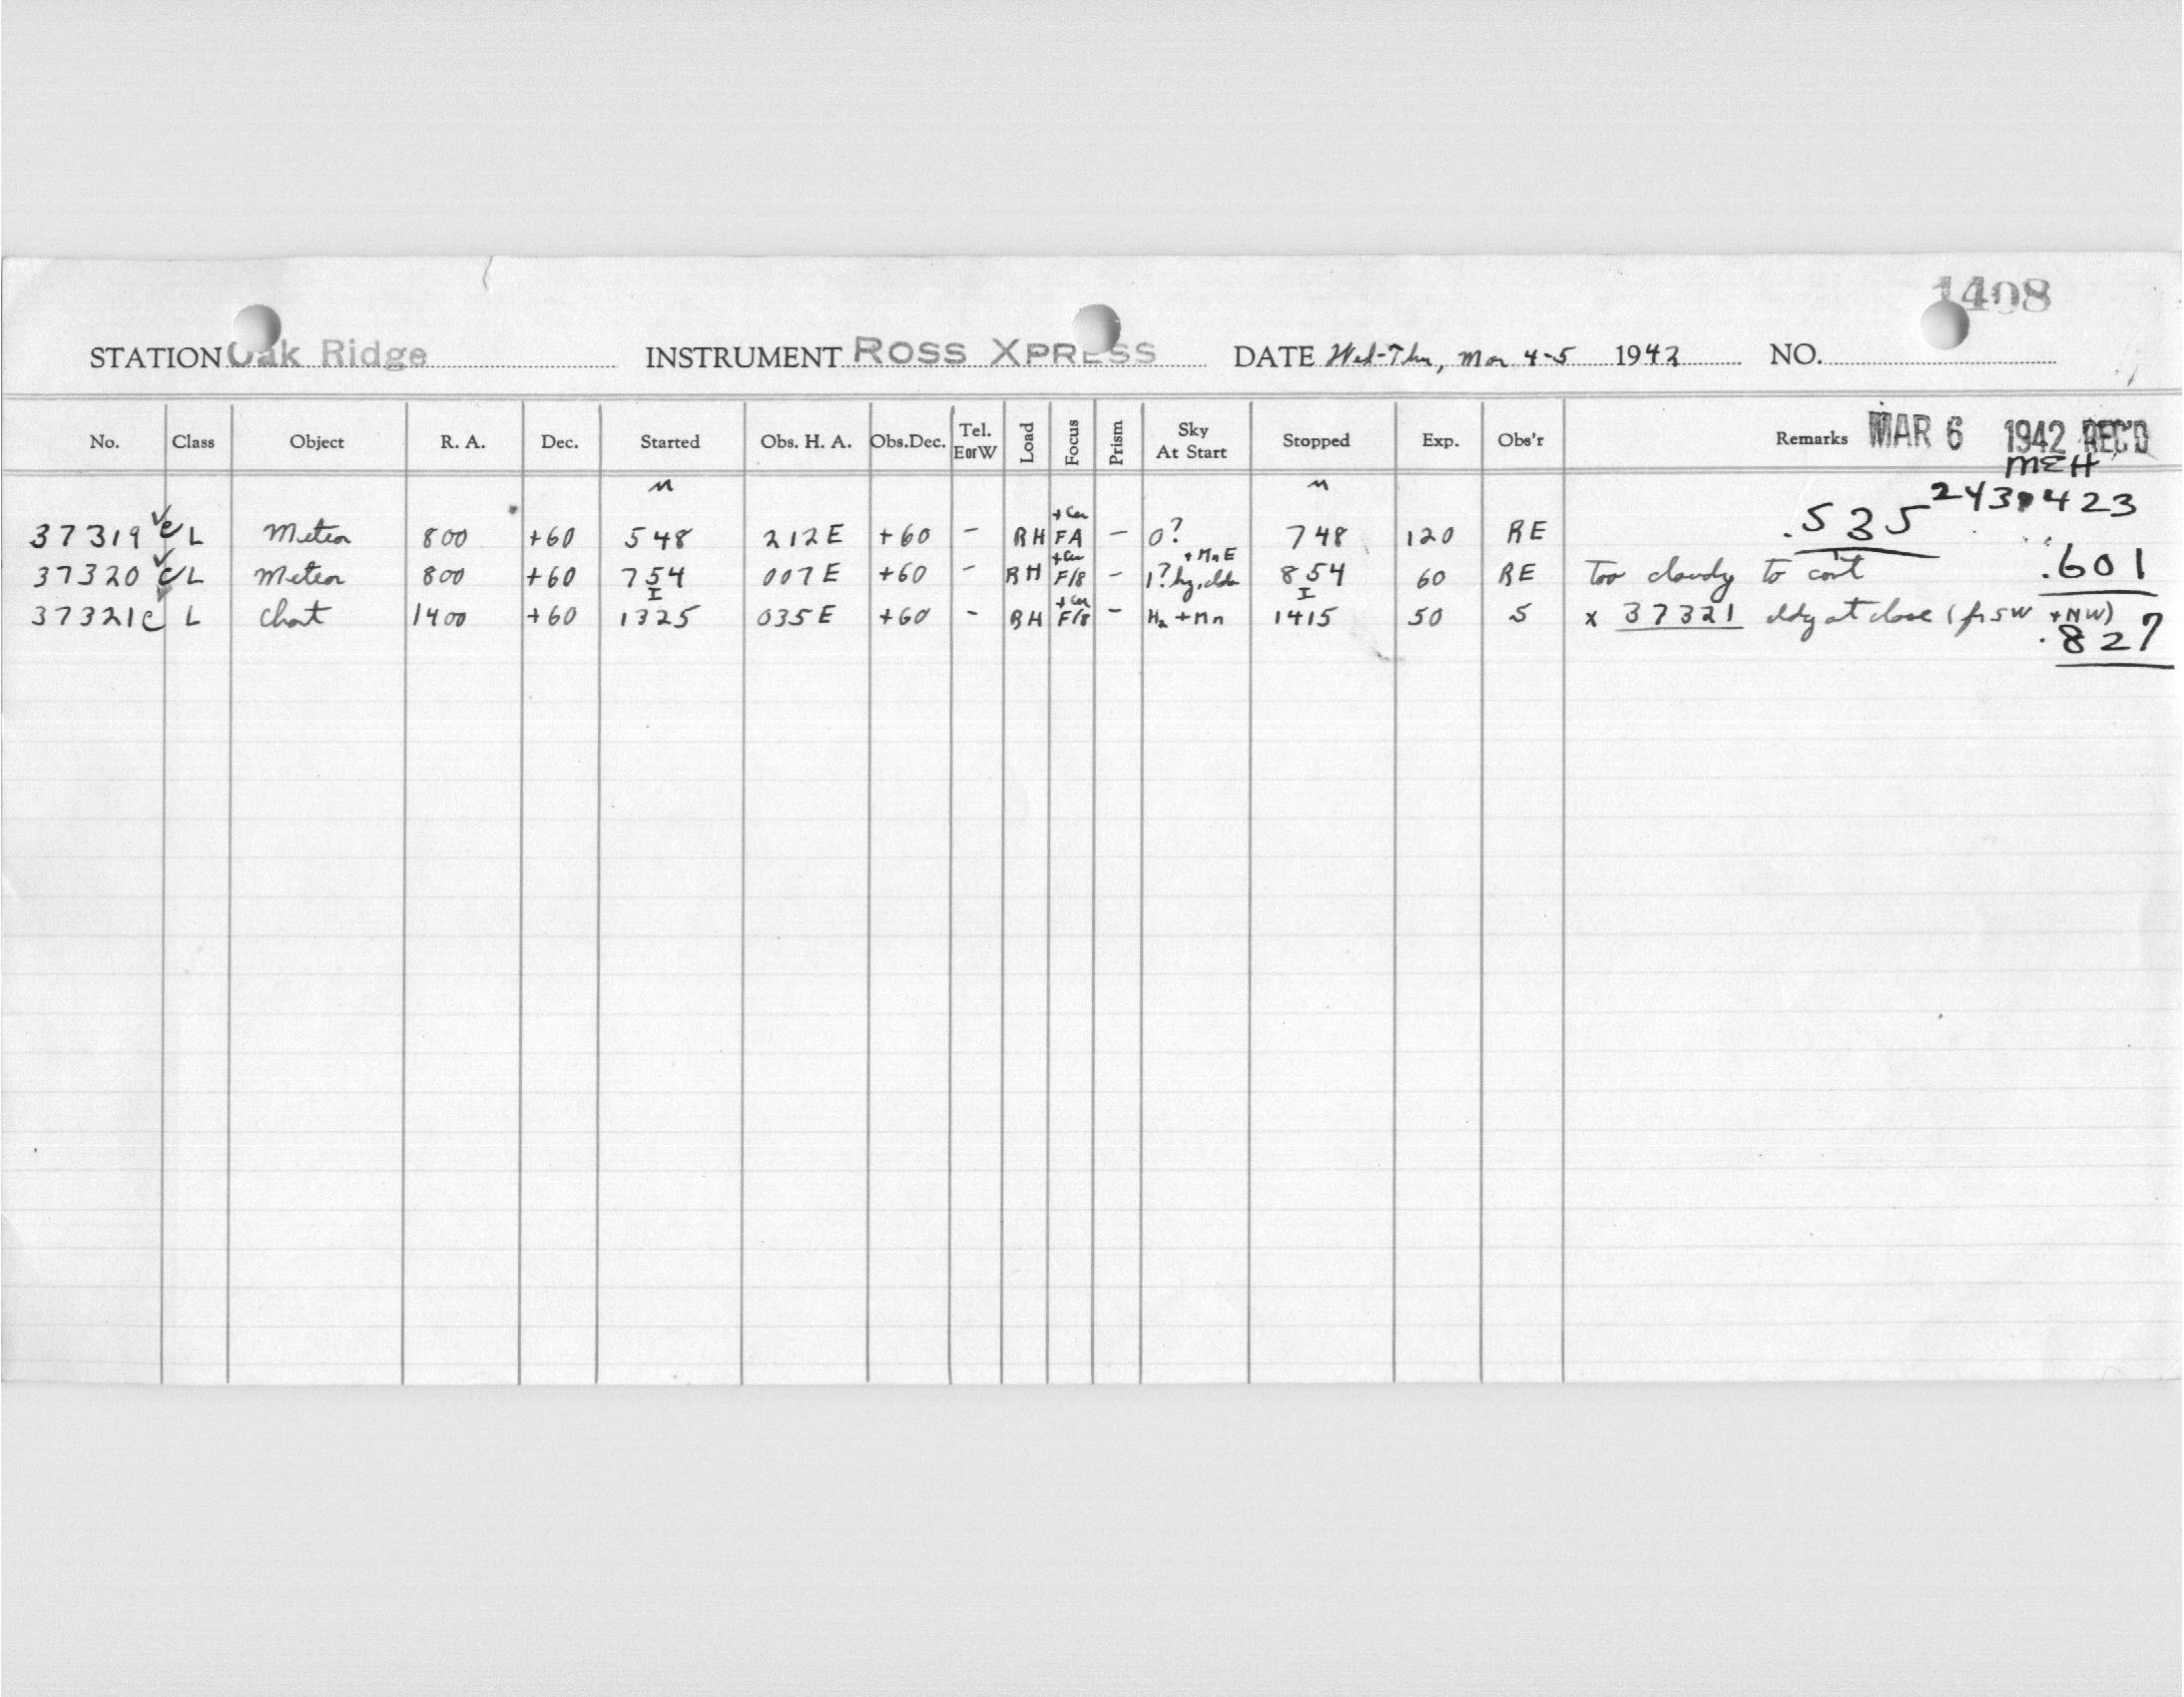 1408
STATION Oak Ridge INSTRUMENT ROSS XPRESS DATE Wed-Thu, Mar 4-5 1942 NO.
No. Class Object R. A. Dec. Started Obs. H. A. Obs.Dec. Tel. E or W Load Focus Prism Sky At Start Stopped Exp. Obs'r Remarks MAR 6 1942 REC'D
MEH
M M
2430423
37319 c L Meteor 800 +60 548 212E +60 - RH +Cor FA - 0? 748 120 RE .535
37320 c L Meteor 800 +60 754 007E +60 - RH +Cor F/8 - 1? hz, clds +MnE 854 60 RE Too cloudy to cont .601
I I
37321 c L Chart 1400 +60 1325 035E +60 - RH +Cor F/8 - Hz +Mn 1415 50 S x 37321 cldy at close (fr SW +NW)
.827